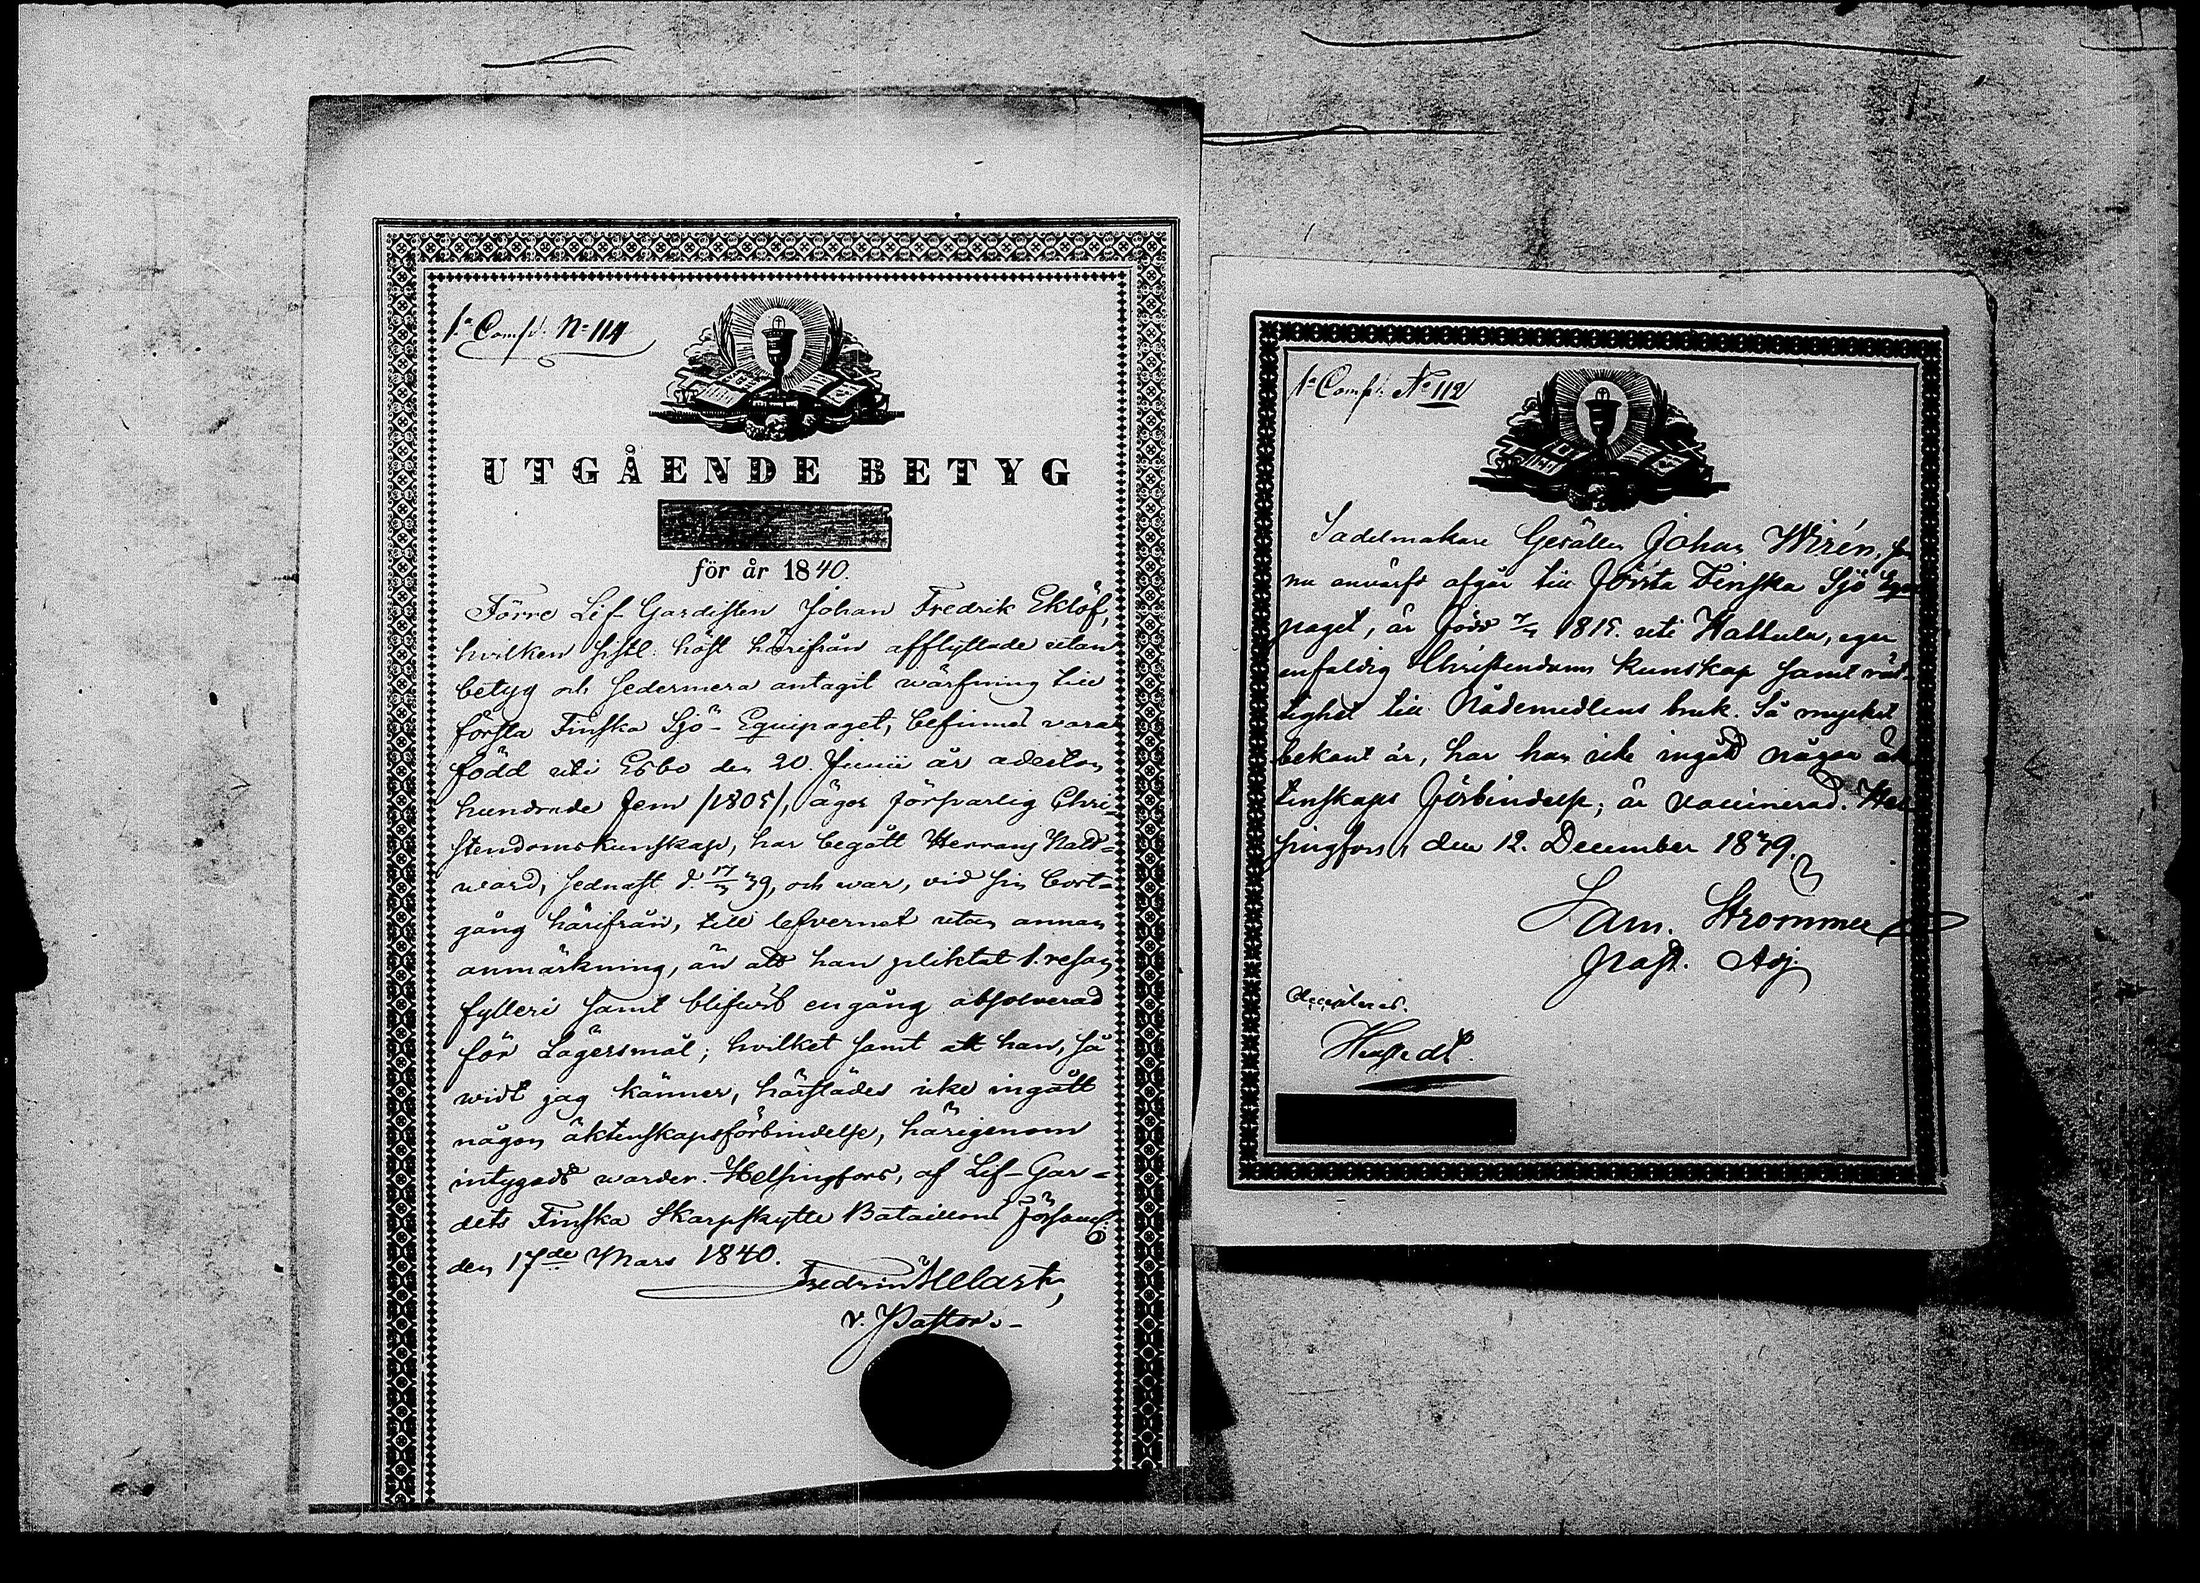 1:a Comp: No 114
UTGÅENDE BETYG
för år 1840.
Förre Lif-Gardisten Johan Fredrik Eklöf,
hvilken sistl. höst härifrån afflyttade utan
betyg och sedermera antagit wärfning till
första Finska Sjö-Equipaget, befinnes vara
född uti Esbo den 20 Junii år aderton
hundrade fem /1805/, äger försvarlig Chri-
stendomskunskap, har begått Herrans Natt-
ward, sednast d. 17/3 39, och war, vid sin bort-
gång härifrån, till lefvernet utan annan
anmärkning, än att han pliktat 1. resan
fylleri samt blifvit en gång absolverad
för Lägersmål; hvilket samt att han, så
widt jag känner, härstädes icke ingått
någon äktenskapsförbindelse, härigenom
intygadt warder. Helsingfors, af Lif-Gar-
dets Finska Skarpskytte Bataillons Församl:
den 17de Mars 1840.
v. Pastor.
1:a Comp: No 112
Sadelmakare Gesällen Johan Wirén, som
nu anvärfd afgår till Första Finska Sjö Equi
paget, är född 1815. uti Hattula, eger
enfaldig Christendoms kunskap samt rät-
tighet till Nådemedlens bruk. Så mycket
bekant är, har han icke ingått någon äk
tenskaps förbindelse; är vaccinerad. Hel
singfors, den 12. December 1839.
Sam. Strömmer
past. Adj.